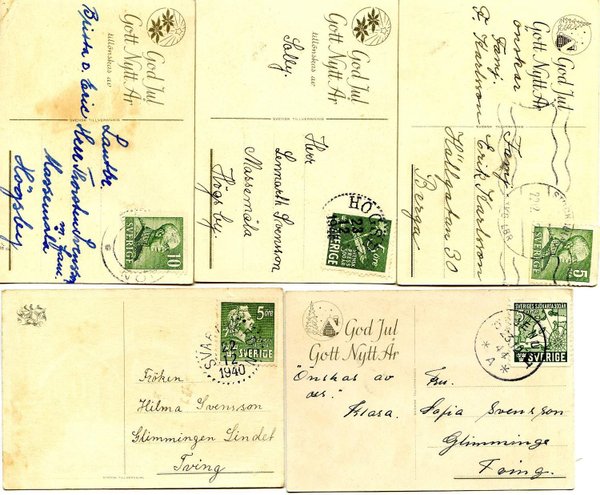 God Jul
Gott Nytt År
tillönskas av
Brita o. Eric.
SVENSK TILLVERKNING
Lantbr.
Herr Thorsten Svensson
m. fam.
Massemåla
Högsby
SVERIGE
10
God Jul
Gott Nytt År
tillönskas av
Sally.
SVENSK TILLVERKNING
Herr
Lennarth Svensson
Massemåla
Högsby.
HÖGSBY
23
12
SVERIGE
God Jul
Gott Nytt År
önskar
Famj.
F. Karlsson
Famj.
Erik Karlsson
Hällgatan 30
Berga
SVERIGE
5
5 öre
SVERIGE
22
12
1940
Fröken
Hilma Svensson
Glimmingen Lindet
Tving
God Jul
Gott Nytt År
"Önskas av
oss."
Klara.
SVERIGES SJÖKARTA 300 ÅR
SVERIGE
* A *
Fru.
Sofia Svensson
Glimminge
Tving.